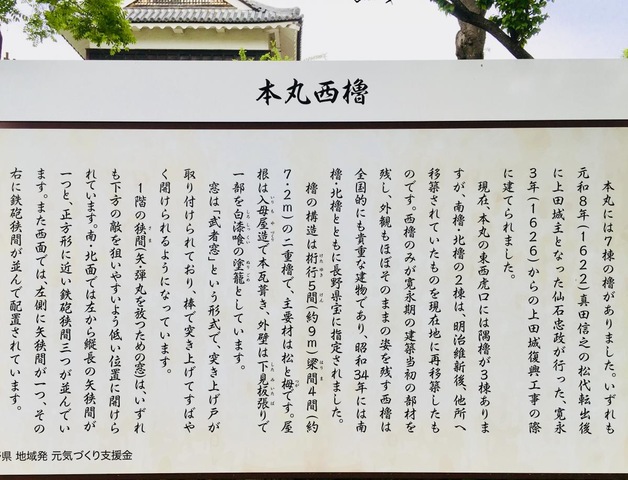 本丸西櫓
本丸には7棟の櫓がありました。いずれも
元和8年(1622)真田信之の松代転出後
に上田城主となった仙石忠政が行った、寛永
3年(1626)からの上田城復興工事の際
に建てられました。
現在、本丸の東西虎口には隅櫓が3棟ありま
すが、南櫓・北櫓の2棟は、明治維新後、他所へ
移築されていたものを現在地に再移築したも
のです。西櫓のみが寛永期の建築当初の部材を
残し、外観もほぼそのままの姿を残す西櫓は
全国的にも貴重な建物であり、昭和34年には南
櫓・北櫓とともに長野県宝に指定されました。
櫓の構造は桁行5間(約9m)梁間4間(約
7・2m)の二重櫓で、主要材は松と栂です。屋
根は入母屋造で本瓦葺き、外壁は下見板張りで
一部を白漆喰の塗籠としています。
窓は「武者窓」という形式で、突き上げ戸が
取り付けられており、棒で突き上げてすばや
く開けられるようになっています。
1階の狭間(矢弾丸を放つための窓)は、いずれ
も下方の敵を狙いやすいよう低い位置に開けら
れています。南・北面では左から縦長の矢狭間が
一つと、正方形に近い鉄砲狭間三つが並んでい
ます。また西面では、左側に矢狭間が一つ、その
右に鉄砲狭間が並んで配置されています。
県 地域発 元気づくり支援金